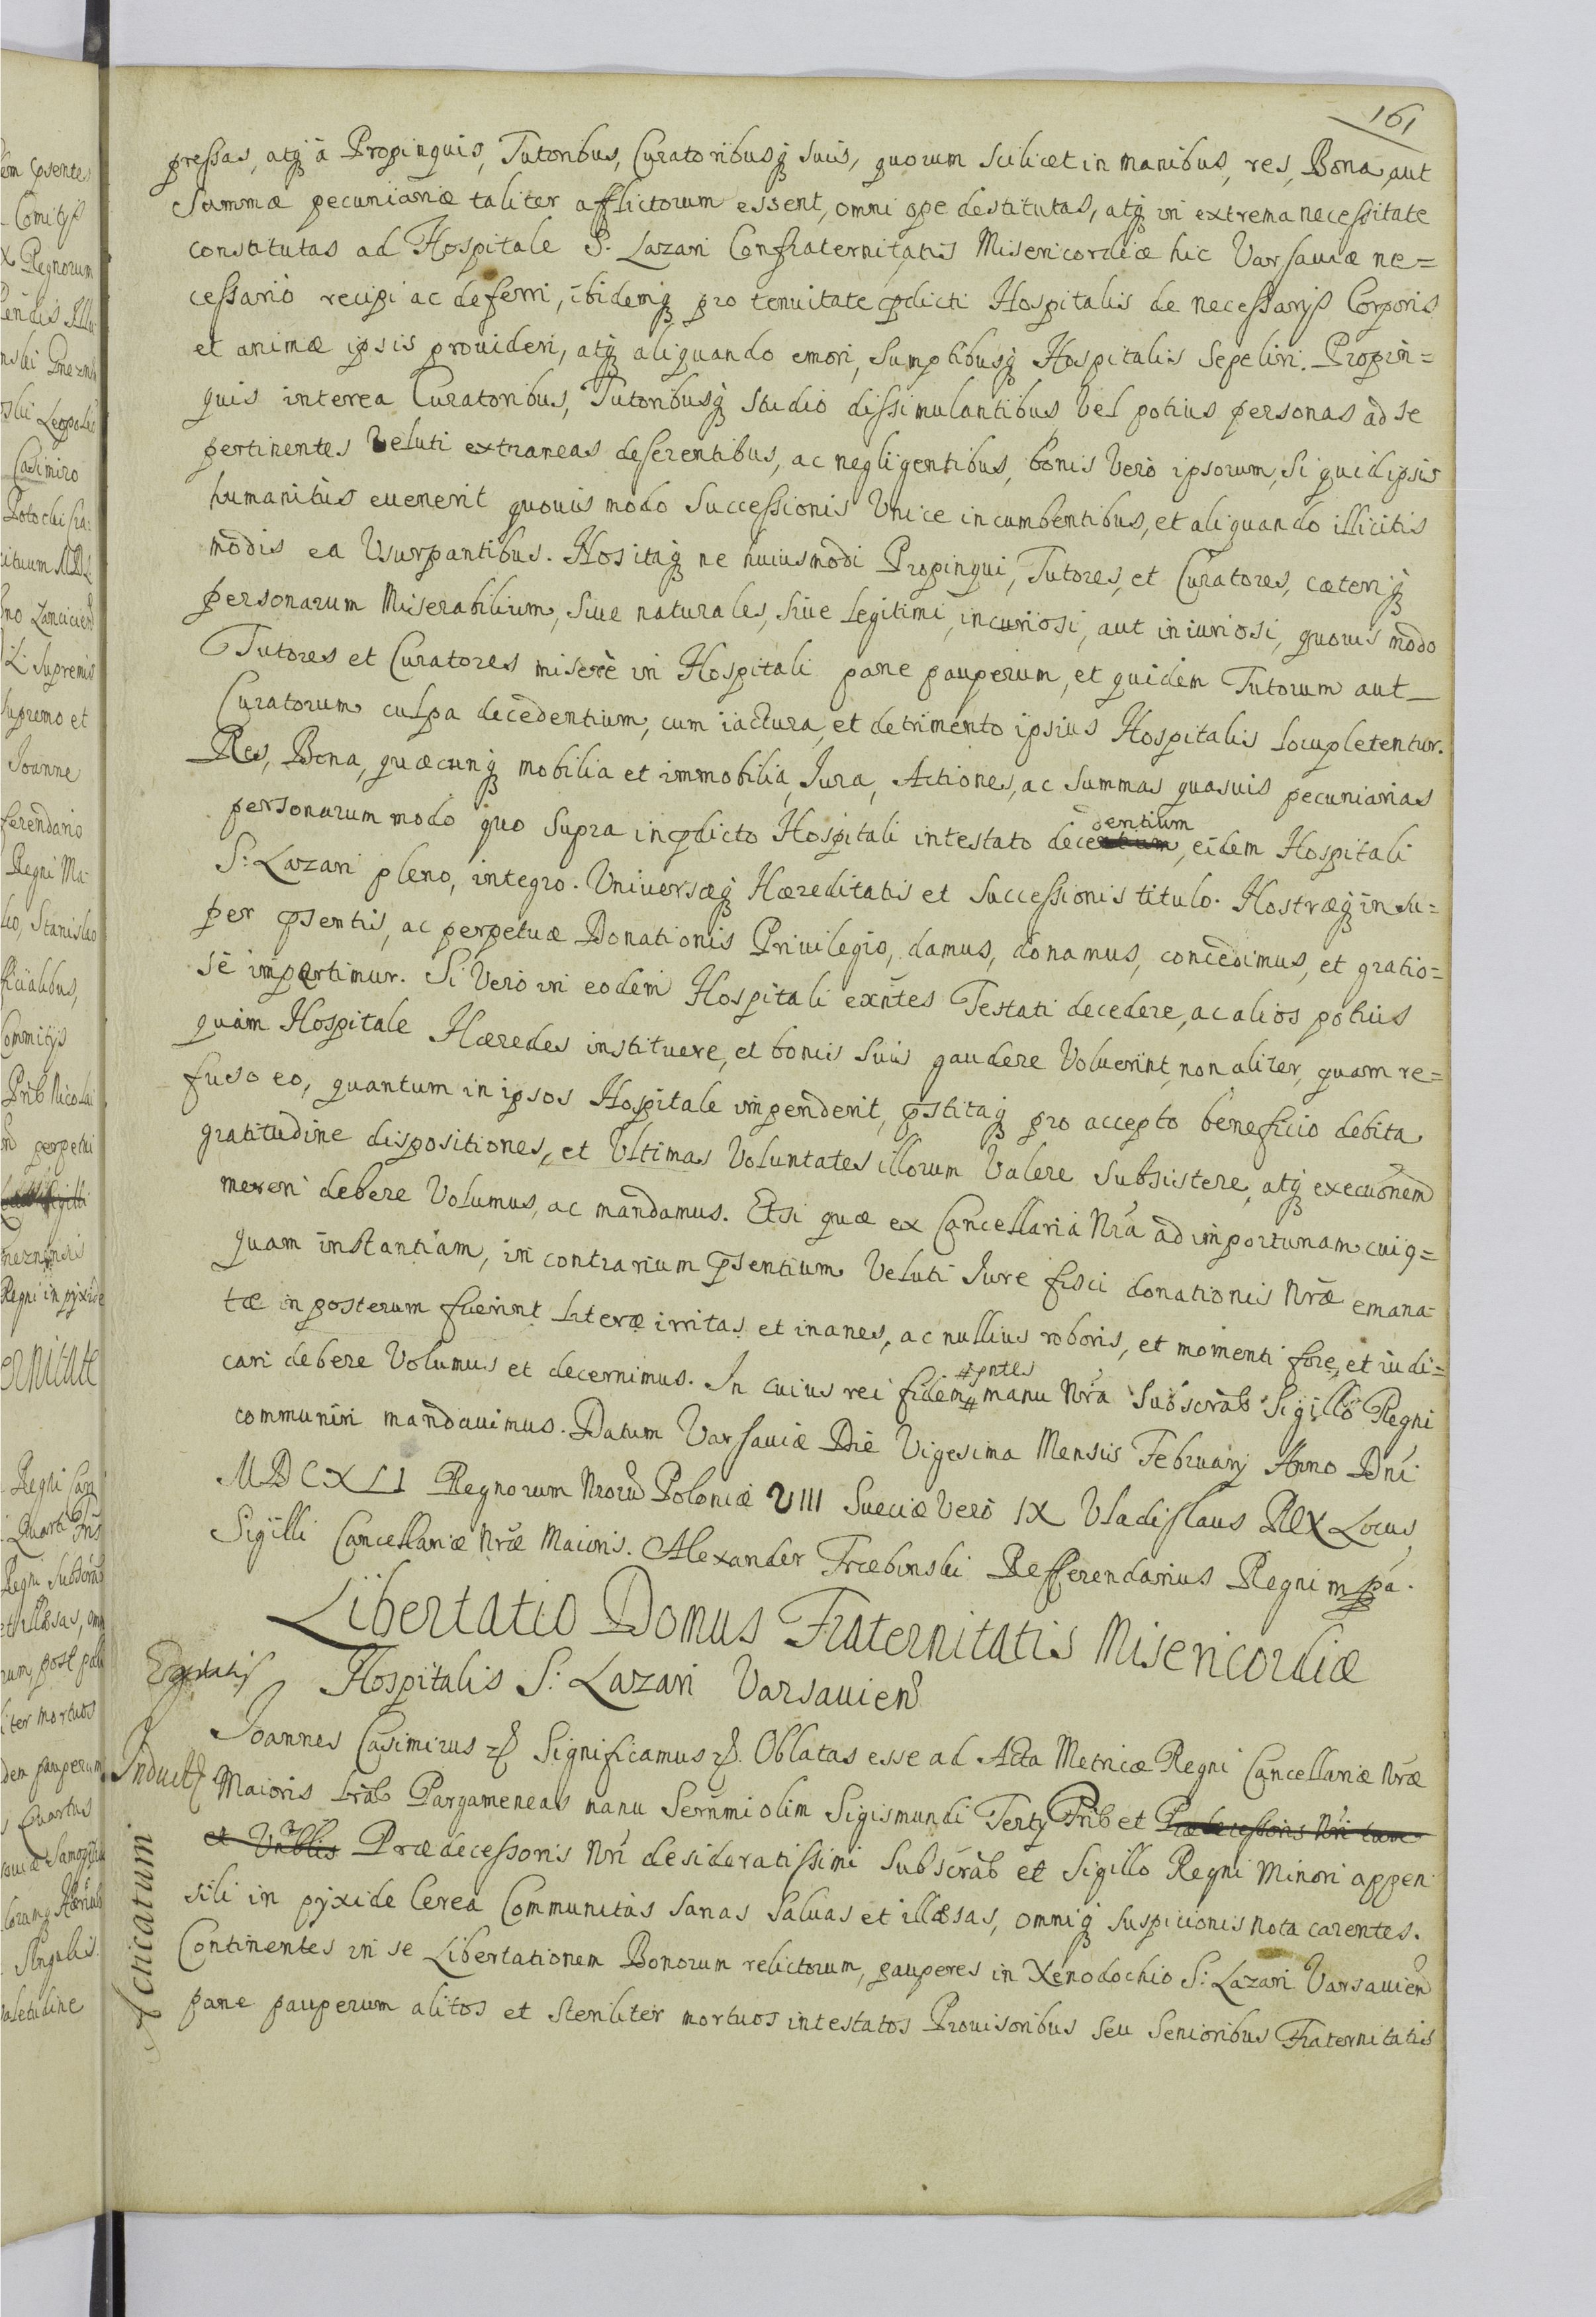 161
pressas, atq à Propinquis, Tutoribus, Curatoribusq suis, quorum scilicet in manibus, res, Bona, aut
Summæ pecuniariæ taliter afflictorum essent, omni ope destitutas, atq in extrema necessitate
constitutas ad Hospitale S. Lazari Confraternitatis Misericordiæ hic Varsaviæ ne=
cessario recipi ac deferri, ibidemq pro tenuitate pdicti Hospitalis de necessarys Corporis
et animæ ipsis prouideri, atq aliquando emori, Sumptibusq Hospitalis Sepeliri. Propin=
quis interea Curatoribus, Tutoribusq studio dissimulantibus, Vel potius personas ad se
pertinentes Veluti extraneas deserentibus, ac negligentibus, bonis Verò ipsorum, Si quid ipsis
humanitùs euenerit quouis modo Successionis Unice incumbentibus, et aliquando illicitis
modis ea Usurpantibus. Nos itaq ne huiusmodi Propinqui, Tutores, et Curatores, cæteriq
personarum Miserabilium, Siue naturales, siue Legitimi, incuriosi, aut iniuriosi, quouis modo
Tutores et Curatores miserè in Hospitali pane pauperum, et quidem Tutorum aut
Curatorum culpa decedentium, cum iactura, et detrimento ipsius Hospitalis Locupletentur.
Res, Bona, quæcunq mobilia et immobilia, Jura, Actiones, ac Summas quasuis pecuniarias
personarum modo quo Supra in pdicto Hospitali intestato decedentium, eidem Hospitali
S: Lazari pleno, integro. Universæq Hæreditatis et Successionis titulo. Nostræq in su=
per psentis, ac perpetuæ Donationis Priuilegio, damus, donamus, concedimus, et gratio=
sè impartimur. Si Verò in eodem Hospitali exn̄tes Testati decedere, ac alios potius
quàm Hospitale Hæredes instituere, et bonis Suis gaudere Voluerint, non aliter, quam re=
fuso eo, quantum in ipsos Hospitale impenderit, pstitaq pro accepto beneficio debita
gratitudine dispositiones, et Ultimas Voluntates illorum Valere Subsistere, atq execuōnem
mereri debere Volumus, ac mandamus. Etsi quæ ex Cancellaria Nrā ad importunam cuiq=
quam instantiam, in contrarium psentium Veluti Jure fisci donationis Nræ emana=
tæ in posterum fuerint Literæ irritas et inanes, ac nullius roboris, et momenti fore, et iudi=
cari debere Volumus et decernimus. In cuius rei fidem # pntes manu Nrā Subscrab Sigillo Regni
communiri mandauimus. Datum Varsaviæ Die Vigesima Mensis February Anno Dni
MDCXLI Regnorum Nrorū Poloniæ VIII Sueciæ Verò IX Vladislaus Rex Locus
Sigilli Cancellariæ Nræ Maioris. Alexander Trzebinski Refferendarius Regni mpa.
Libertatio Domus Fraternitatis Misericordiæ
Hospitalis S: Lazari Varsauien
Joannes Casimirus Significamus. Oblatas esse ad Acta Metricæ Regni Cancellariæ Nræ
Induct
Maioris Lrāb Pargameneas manu Sernmi olim Sigismundi Terty Prib et Prædecessoris Nri tam
et Præ decessoris Nri desideratissimi Subscrab et Sigillo Regni Minori appen
sili in pyxide Cerea Communitas Sanas Saluas et illæsas, omniq suspicionis nota carentes.
Continentes in se Libertationem Bonorum relictorum, pauperes in Xenodochio S: Lazari Varsauien
pane pauperum alitos et steriliter mortuos intestatos Prouisoribus seu Senioribus Fraternitatis
Acticatum